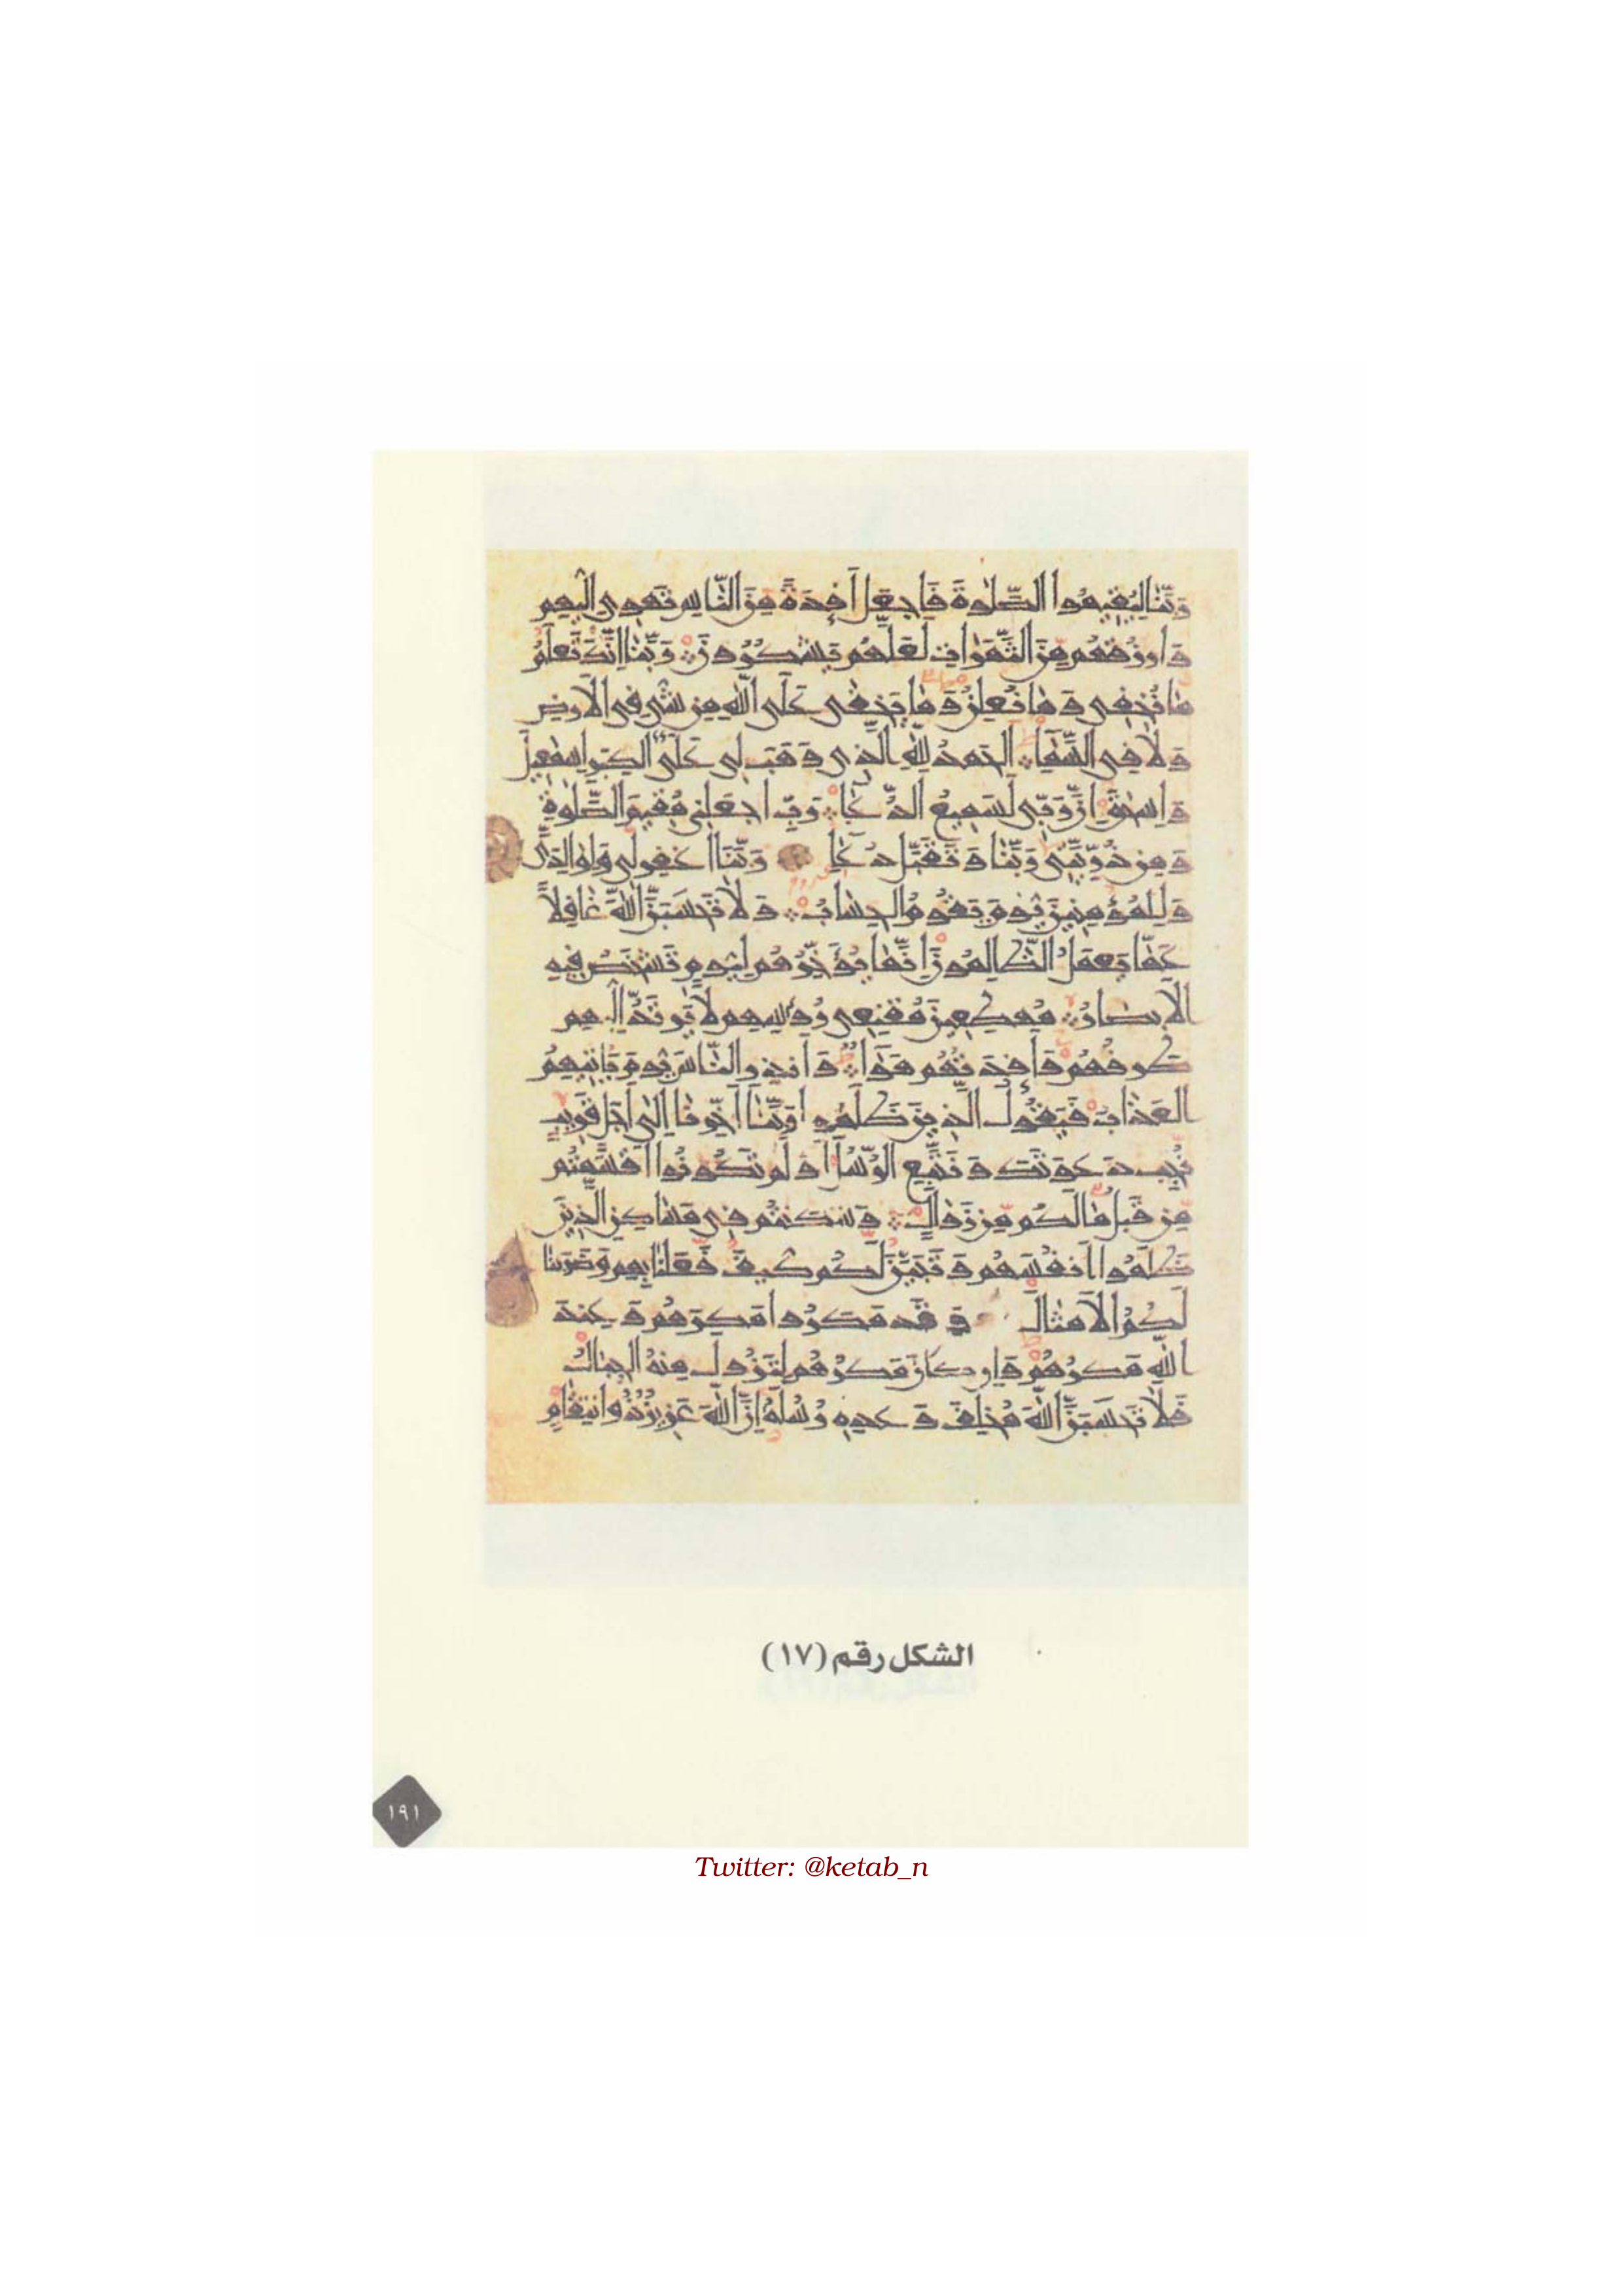 رَبَّنَا لِيُقِيمُوا الصَّلٰوةَ فَاجْعَلْ أَفْئِدَةً مِنَ النَّاسِ تَهْوِي إِلَيْهِمْ
وَارْزُقْهُمْ مِنَ الثَّمَرَاتِ لَعَلَّهُمْ يَشْكُرُونَ رَبَّنَا إِنَّكَ تَعْلَمُ
مَا نُخْفِي وَمَا نُعْلِنُ وَمَا يَخْفٰى عَلَى اللّٰهِ مِنْ شَيْءٍ فِي الْأَرْضِ
وَلَا فِي السَّمَاءِ الْحَمْدُ لِلّٰهِ الَّذِي وَهَبَ لِي عَلَى الْكِبَرِ إِسْمٰعِيلَ
وَإِسْحٰقَ إِنَّ رَبِّي لَسَمِيعُ الدُّعَاءِ رَبِّ اجْعَلْنِي مُقِيمَ الصَّلٰوةِ
وَمِنْ ذُرِّيَّتِي رَبَّنَا وَتَقَبَّلْ دُعَاءِ رَبَّنَا اغْفِرْ لِي وَلِوَالِدَيَّ
وَلِلْمُؤْمِنِينَ يَوْمَ يَقُومُ الْحِسَابُ وَلَا تَحْسَبَنَّ اللّٰهَ غَافِلًا
عَمَّا يَعْمَلُ الظَّالِمُونَ إِنَّمَا يُؤَخِّرُهُمْ لِيَوْمٍ تَشْخَصُ فِيهِ
الْأَبْصَارُ مُهْطِعِينَ مُقْنِعِي رُءُوسِهِمْ لَا يَرْتَدُّ إِلَيْهِمْ
طَرْفُهُمْ وَأَفْئِدَتُهُمْ هَوَاءٌ وَأَنْذِرِ النَّاسَ يَوْمَ يَأْتِيهِمُ
الْعَذَابُ فَيَقُولُ الَّذِينَ ظَلَمُوا رَبَّنَا أَخِّرْنَا إِلٰى أَجَلٍ قَرِيبٍ
نُجِبْ دَعْوَتَكَ وَنَتَّبِعِ الرُّسُلَ أَوَلَمْ تَكُونُوا أَقْسَمْتُمْ
مِنْ قَبْلُ مَا لَكُمْ مِنْ زَوَالٍ وَسَكَنْتُمْ فِي مَسَاكِنِ الَّذِينَ
ظَلَمُوا أَنْفُسَهُمْ وَتَبَيَّنَ لَكُمْ كَيْفَ فَعَلْنَا بِهِمْ وَضَرَبْنَا
لَكُمُ الْأَمْثَالَ وَقَدْ مَكَرُوا مَكْرَهُمْ وَعِنْدَ
اللّٰهِ مَكْرُهُمْ وَإِنْ كَانَ مَكْرُهُمْ لِتَزُولَ مِنْهُ الْجِبَالُ
فَلَا تَحْسَبَنَّ اللّٰهَ مُخْلِفَ وَعْدِهِ رُسُلَهُ إِنَّ اللّٰهَ عَزِيزٌ ذُو انْتِقَامٍ
الشكل رقم (١٧)
١٩١
Twitter: @ketab_n